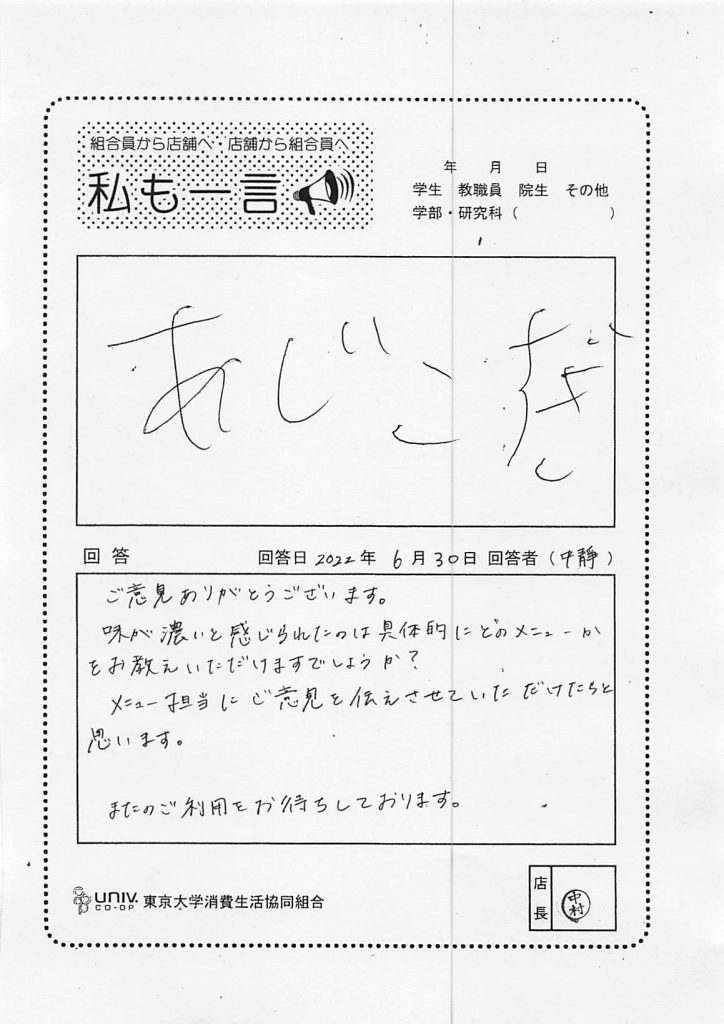 組合員から店舗へ・店舗から組合員へ
私も一言
年 月 日
学生 教職員 院生 その他
学部・研究科( )
あじこ
回答 回答日 2022年 6月30日 回答者(中靜)
ご意見ありがとうございます。
味が濃いと感じられたのは具体的にどのメニューか
をお教えいただけますでしょうか?
メニュー担当にご意見を伝えさせていただけたらと
思います。
またのご利用をお待ちしております。
UNIV.
CO-OP
東京大学消費生活協同組合
店長
中村